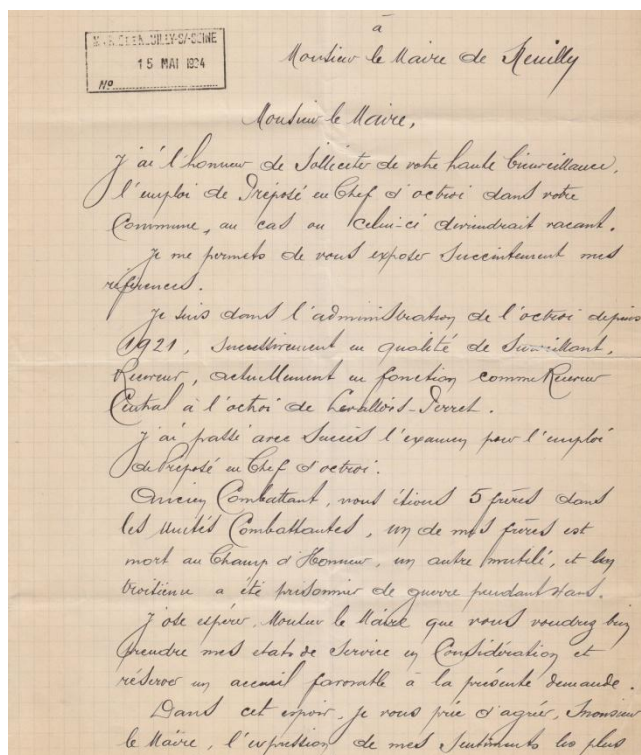 à
Monsieur le Maire de Neuilly
MAIRIE DE NEUILLY-S/-SEINE
15 MAI 1934
No
Monsieur le Maire,
J'ai l'honneur de solliciter de votre haute bienveillance,
l'emploi de Préposé en Chef d'octroi dans votre
Commune, au cas ou celui-ci deviendrait vacant.
Je me permets de vous exposer succintement mes
références.
Je suis dans l'administration de l'octroi depuis
1921, successivement en qualité de Surveillant,
Receveur, actuellement en fonction comme Receveur
Central à l'octroi de Levallois-Perret.
J'ai passé avec succès l'examen pour l'emploi
de Préposé en Chef d'octroi.
Ancien Combattant, nous étions 5 frères dans
les unités Combattantes, un de mes frères est
mort au Champ d'Honneur, un autre mutilé, et un
troisième a été prisonnier de guerre pendant ans.
J'ose espérer, Monsieur le Maire que vous voudrez bien
prendre mes etats de Service en Considération et
réserver un accueil favorable à la présente demande.
Dans cet espoir, je vous prie d'agréer, Monsieur
le Maire, l'expression de mes sentiments les plus